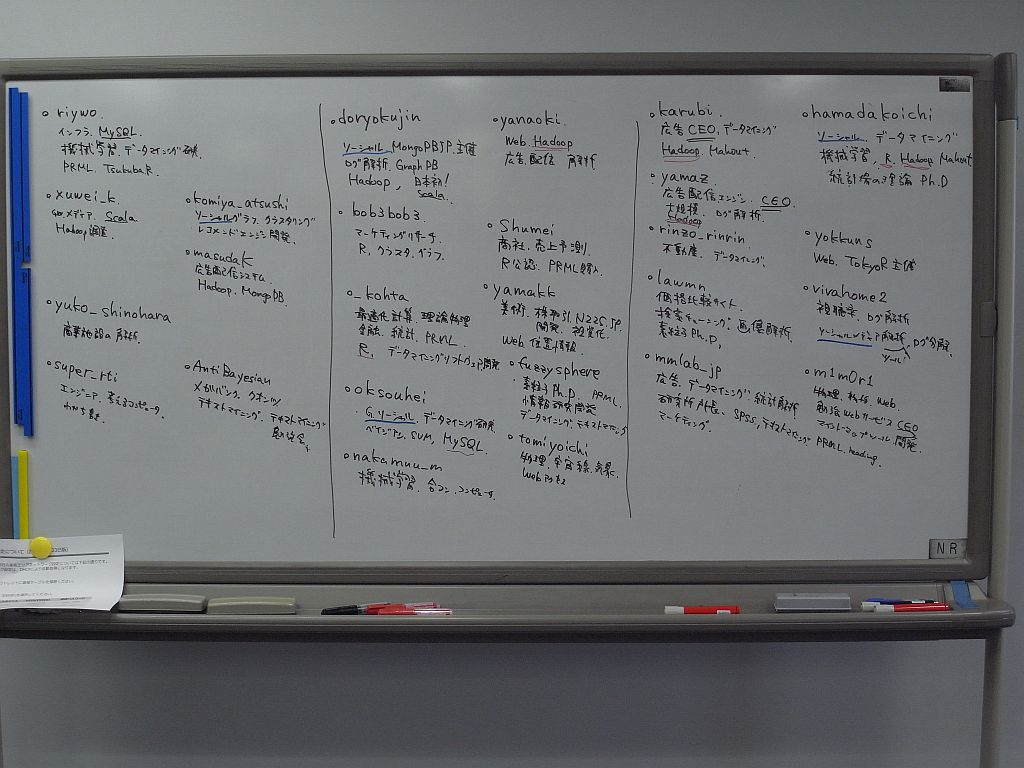 riywo
インフラ. MySQL.
機械学習. データマイニング
PRML. TsukubaR.
xuwei_k
メディア. Scala
Hadoop調査.
komiya_atsushi
ソーシャルグラフ. クラスタリング
レコメンドエンジン開発.
masudaK
広告配信システム.
Hadoop. MongoDB.
yuko_shinohara
商業施設の解析
super_rti
エンジニア.
AntiBayesian
メガバンク. クオンツ
テキストマイニング. テキストマイニング
勉強会
doryokujin
ソーシャル MongoDB JP. 主催
ログ解析. GraphDB
Hadoop, 日本初!
Scala.
bob3bob3.
マーケティングリサーチ
R. クラスタ. グラフ.
_kohta
最適化計算. 理論物理
金融. 統計. PRML
R. データマイニングソフトウェア開発
oksouhei
G. ソーシャル. データマイニング
ベイジアン. SVM. MySQL.
nakamuu_m
機械学習. 合コン. コンピュータ.
yanaoki.
Web. Hadoop
広告配信 解析
Shumei
商社. 売上予測.
R公認. PRML
yamakk
美術. 株取引. N225.JP.
開発. 視覚化.
Web. 位置情報.
fuzzysphere
素粒子 Ph.D. PRML.
情報研究開発
データマイニング. テキストマイニング
tomiyoichi
物理. 宇宙線. 気象.
Web
karubi.
広告 CEO. データマイニング
Hadoop. Mahout.
yamaz
広告配信エンジン. CEO.
大規模. ログ解析.
Hadoop
rinzo_rinrin.
不動産. データマイニング.
lawmn
価格比較サイト.
検索チューニング. 画像解析.
素粒子 Ph.D,
mmlab_jp
広告. データマイニング. 統計解析
SPSS, テキストマイニング PRML reading.
マーケティング.
hamadakoichi
ソーシャル. データマイニング
機械学習. R. Hadoop Mahout
統計 理論 Ph.D
yokkuns
Web. TokyoR 主催
vivahome2
視聴率. ログ解析
ソーシャルメディア解析. ログ分解.
ツール!
m1m0r1
物理. 科学. Web.
勉強Webサービス CEO
マインドマップツール. 開発.
NR